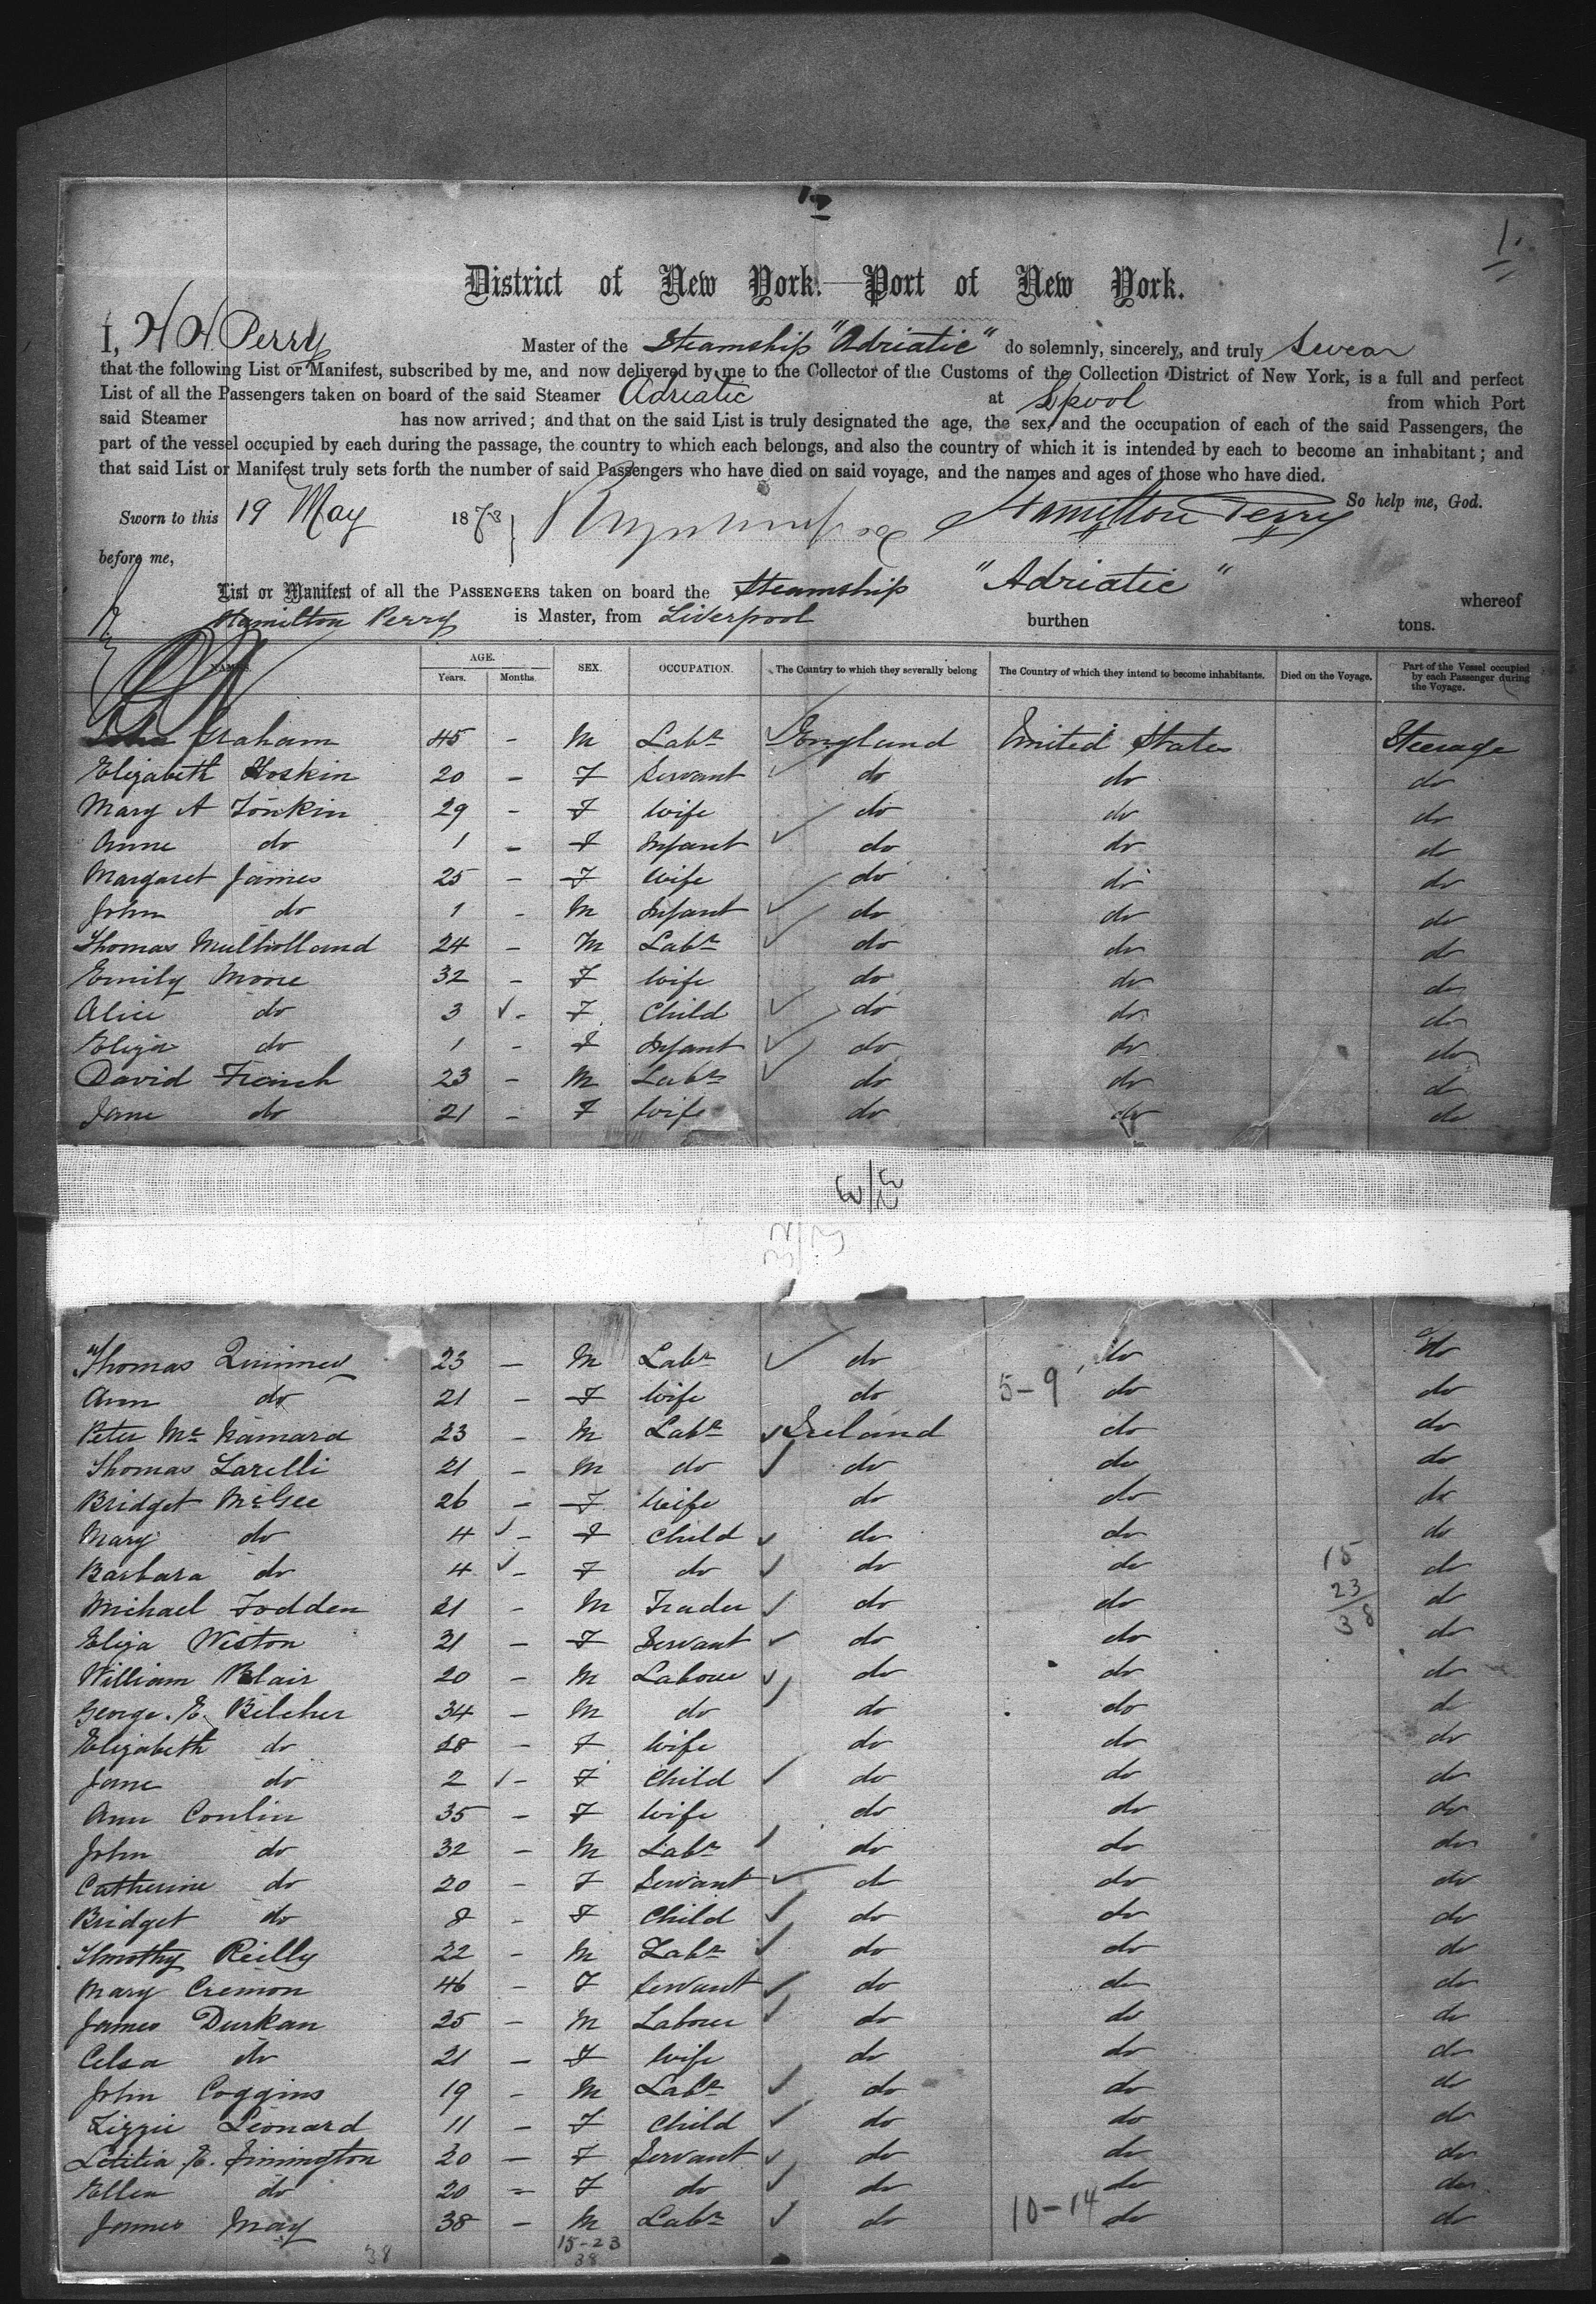 1.
District of New York.—Port of New York.
I, H H Perry Master of the Steamship "Adriatic" do solemnly, sincerely, and truly swear
that the following List or Manifest, subscribed by me, and now delivered by me to the Collector of the Customs of the Collection District of New York, is a full and perfect
List of all the Passengers taken on board of the said Steamer Adriatic at Lpool from which Port
said Steamer has now arrived; and that on the said List is truly designated the age, the sex, and the occupation of each of the said Passengers, the
part of the vessel occupied by each during the passage, the country to which each belongs, and also the country of which it is intended by each to become an inhabitant; and
that said List or Manifest truly sets forth the number of said Passengers who have died on said voyage, and the names and ages of those who have died.
So help me, God.
Sworn to this 19 May 1873 Hamilton Perry
before me,
List or Manifest of all the PASSENGERS taken on board the Steamship "Adriatic" whereof
Hamilton Perry is Master, from Liverpool burthen tons.
NAMES. AGE. Years. Months. SEX. OCCUPATION. The Country to which they severally belong The Country of which they intend to become inhabitants. Died on the Voyage. Part of the Vessel occupied by each Passenger during the Voyage.
John Graham 45 - M Labr England United States Steerage
Elizabeth Hoskin 20 - F Servant do do do
Mary A Tonkin 29 - F Wife do do do
Anne do 1 - F Infant do do do
Margaret James 25 - F Wife do do do
John do 1 - M Infant do do do
Thomas Mulholland 24 - M Labr do do do
Emily Moore 32 - F Wife do do do
Alice do 3 - F Child do do do
Eliza do 1 - F Infant do do do
David French 23 - M Labr do do do
Jane do 21 - F Wife do do do
Thomas 23 - M Labr do do do
Ann do 21 - F Wife do 5-9 do do
Peter Mc Namara 23 - M Labr Ireland do do
Thomas Larelli 21 - M do do do do
Bridget McGee 26 - F Wife do do do
Mary do 4 - F Child do do do
Barbara do 4 - F do do do 15 do
Michael Fodden 21 - M Trader do do 23 do
Eliza Weston 21 - F Servant do do 38 do
William Blair 20 - M Labour do do do
George. E. Bilcher 34 - M do do do do
Elizabeth do 28 - F Wife do do do
Jane do 2 - F Child do do do
Ann Conlin 35 - F Wife do do do
John do 32 - M Labr do do do
Catherine do 20 - F Servant do do do
Bridget do 8 - F Child do do do
Timothy Reilly 22 - M Labr do do do
Mary Cremon 46 - F Servant do do do
James Durkan 25 - M Labour do do do
Celsa do 21 - F Wife do do do
John Coggins 19 - M Labr do do do
Lizzie Leonard 11 - F Child do do do
Letitia E. Simington 20 - F Servant do do do
Ellen do 20 - F do do do do
James May 38 - M Labr do 10-14 do do
38 15-23
38